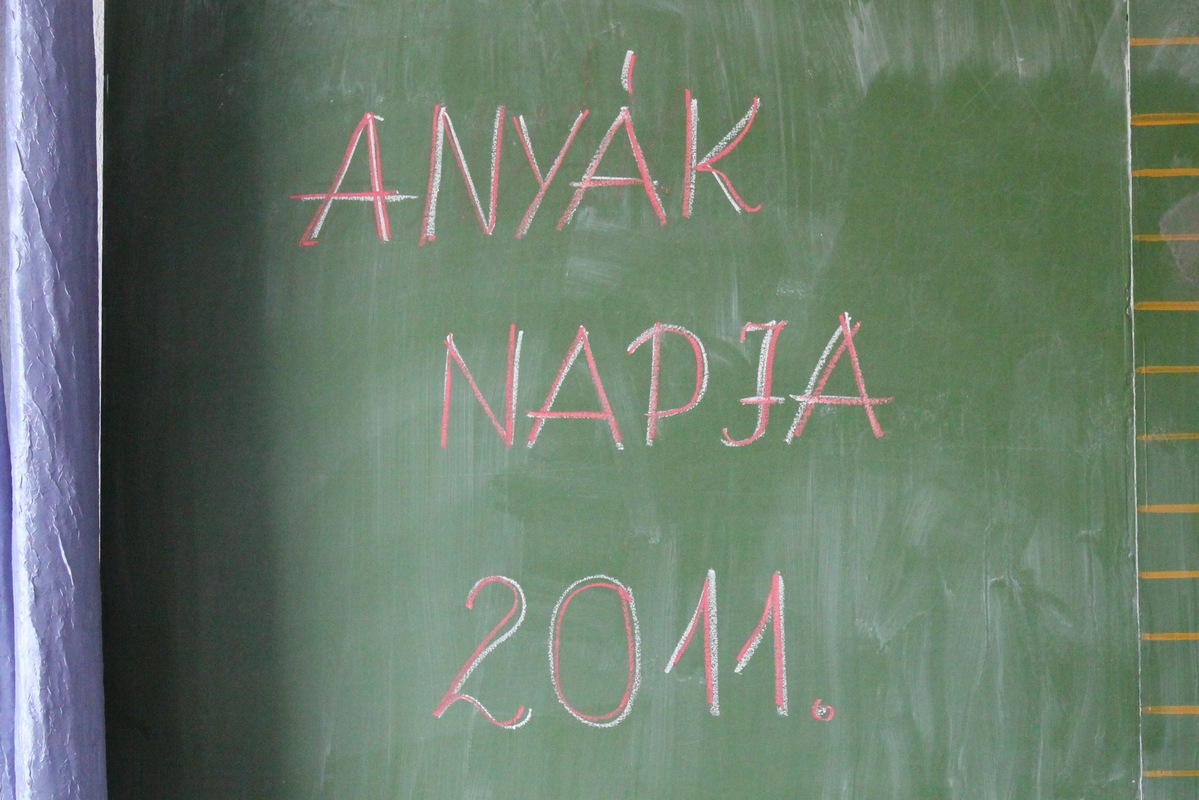 ANYÁK
NAPJA
2011.